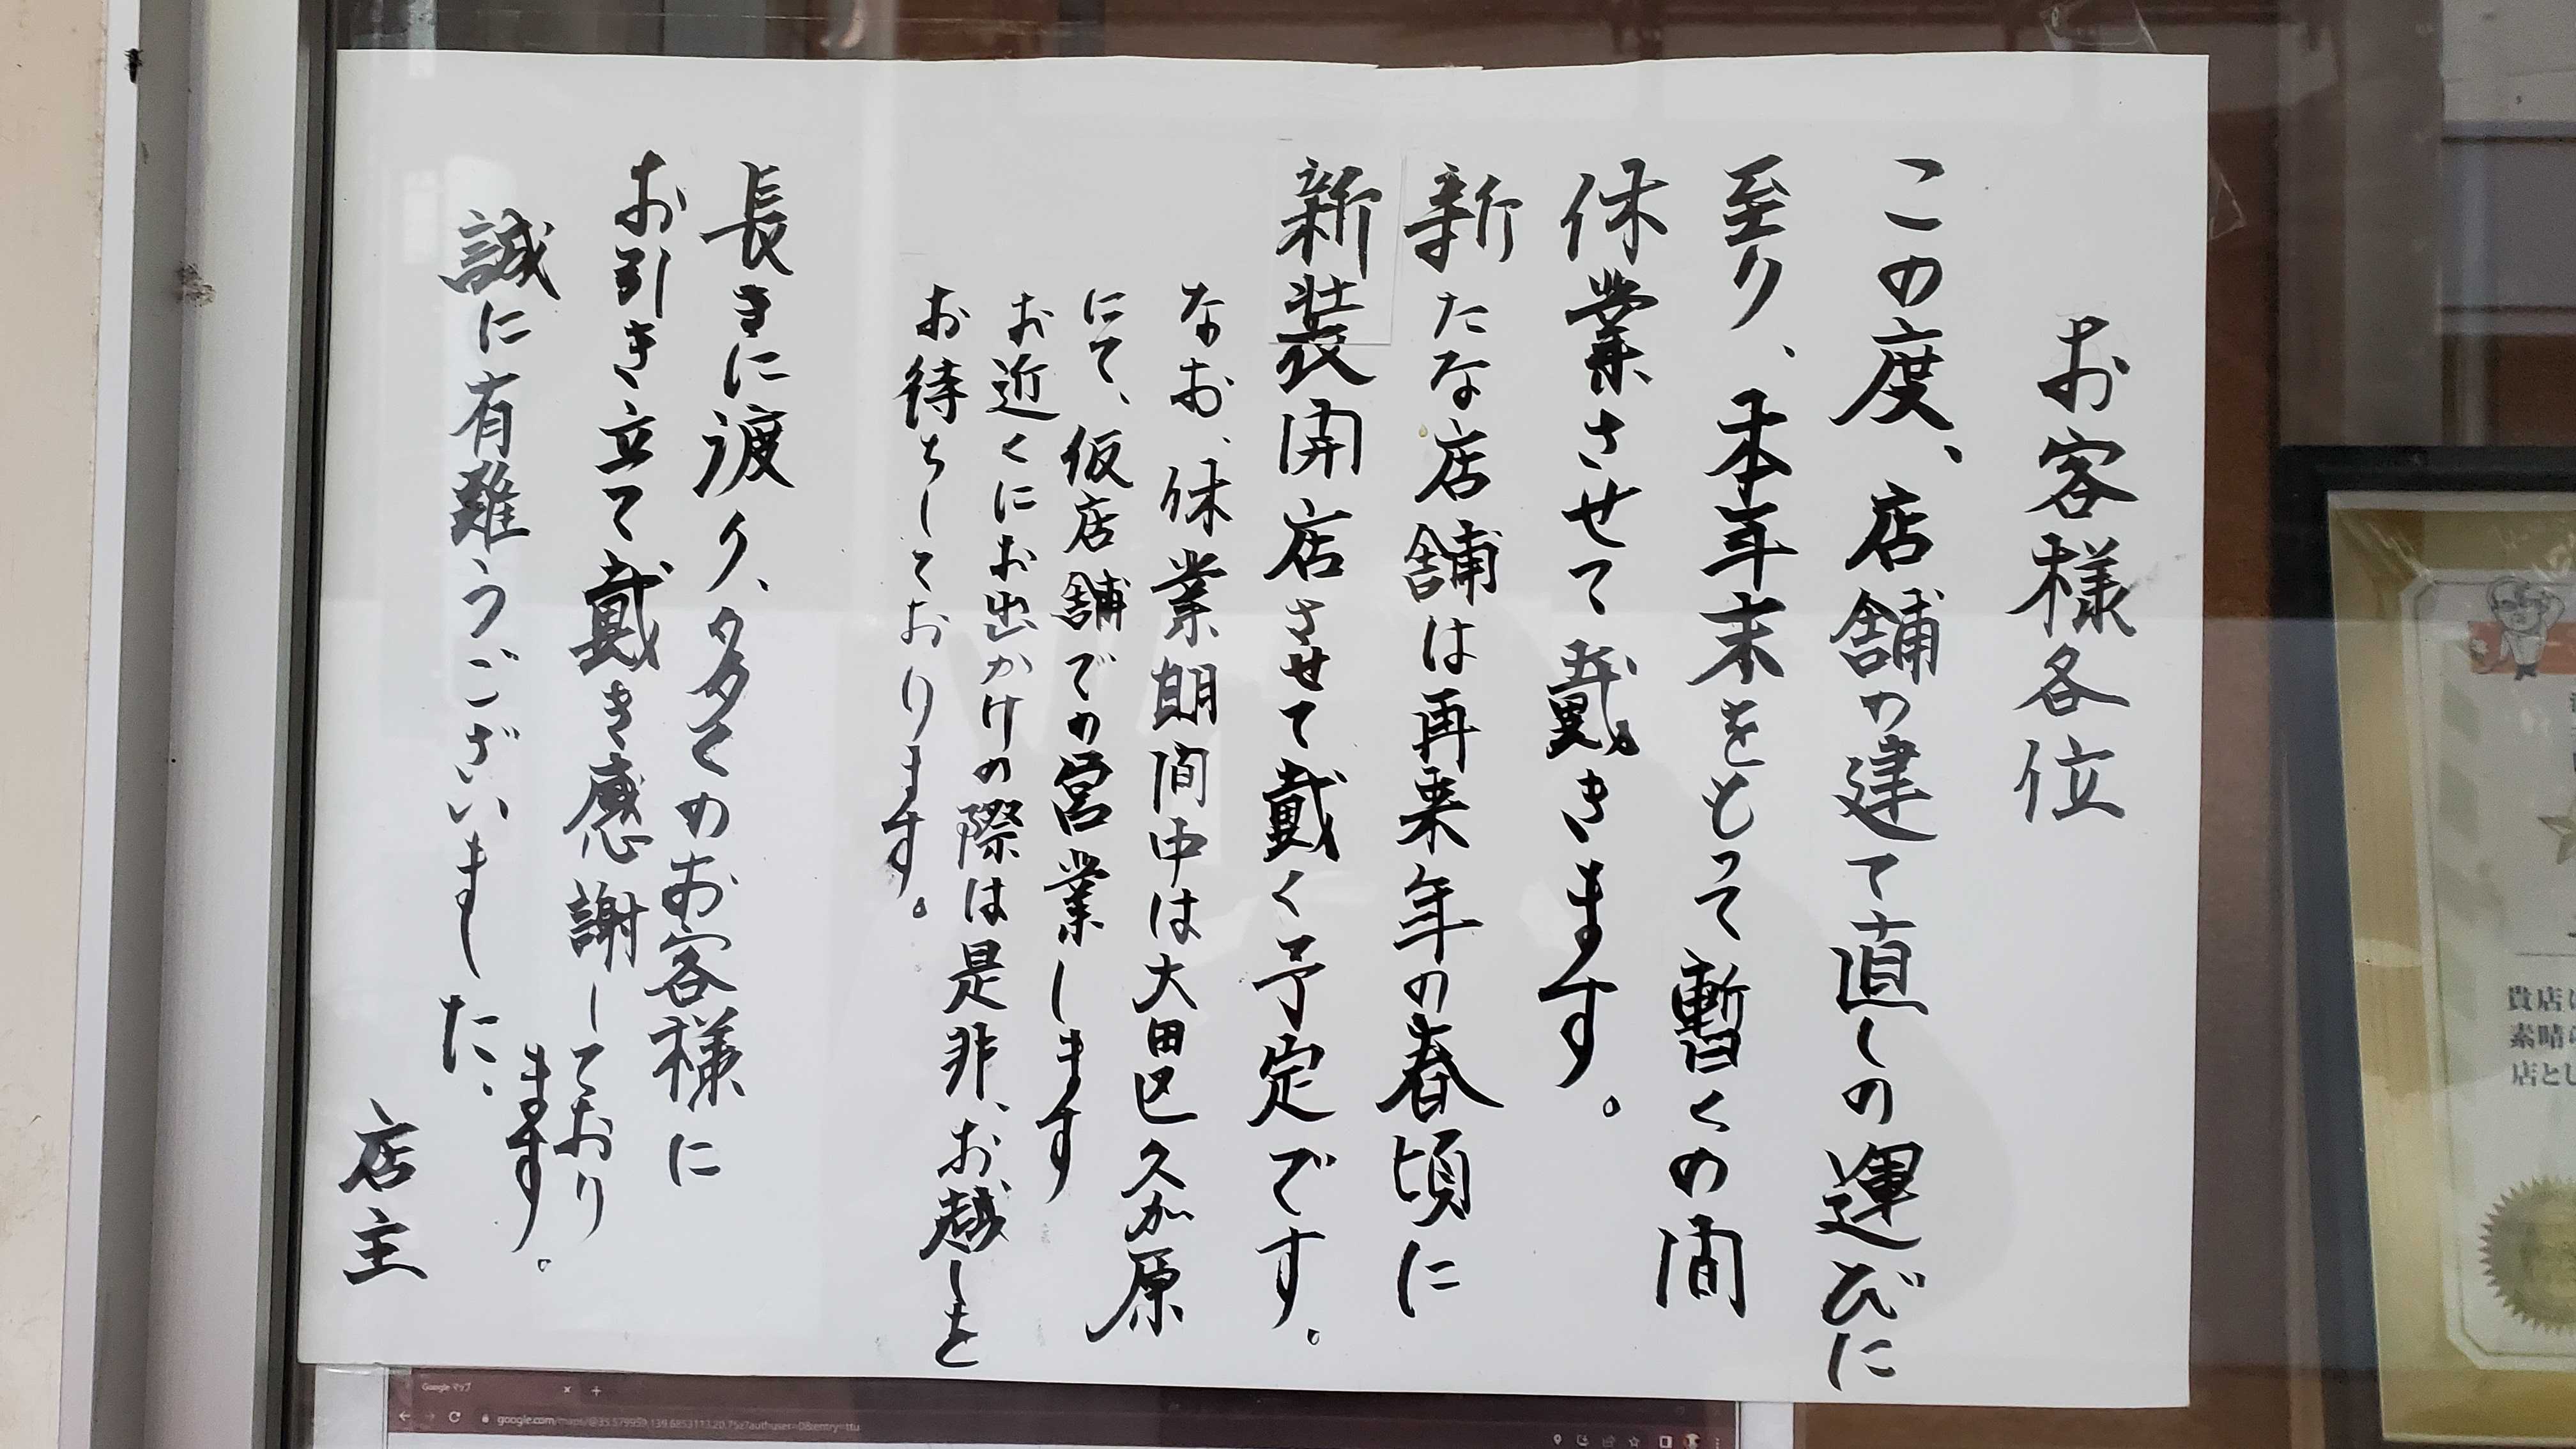 お客様各位
この度、店舗の建て直しの運びに
至り、本年末をもって暫くの間
休業させて戴きます。
新たな店舗は再来年の春頃に
新装開店させて戴く予定です。
なお、休業期間中は大田区久が原
にて、仮店舗での営業します
お近くにお出かけの際は是非、お越しを
お待ちしております。
長きに渡り、多くのお客様に
お引き立て戴き感謝しております。
誠に有難うございました。
店主
貴店に
素晴ら
店とし
Google マップ